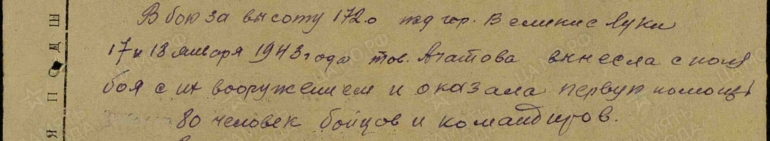 В бою за высоту 172.0 под гор. Великие Луки
17 и 18 января 1943 года тов. Агатова вынесла с поля
боя с их вооружением и оказала первую помощь
80 человек бойцов и командиров.